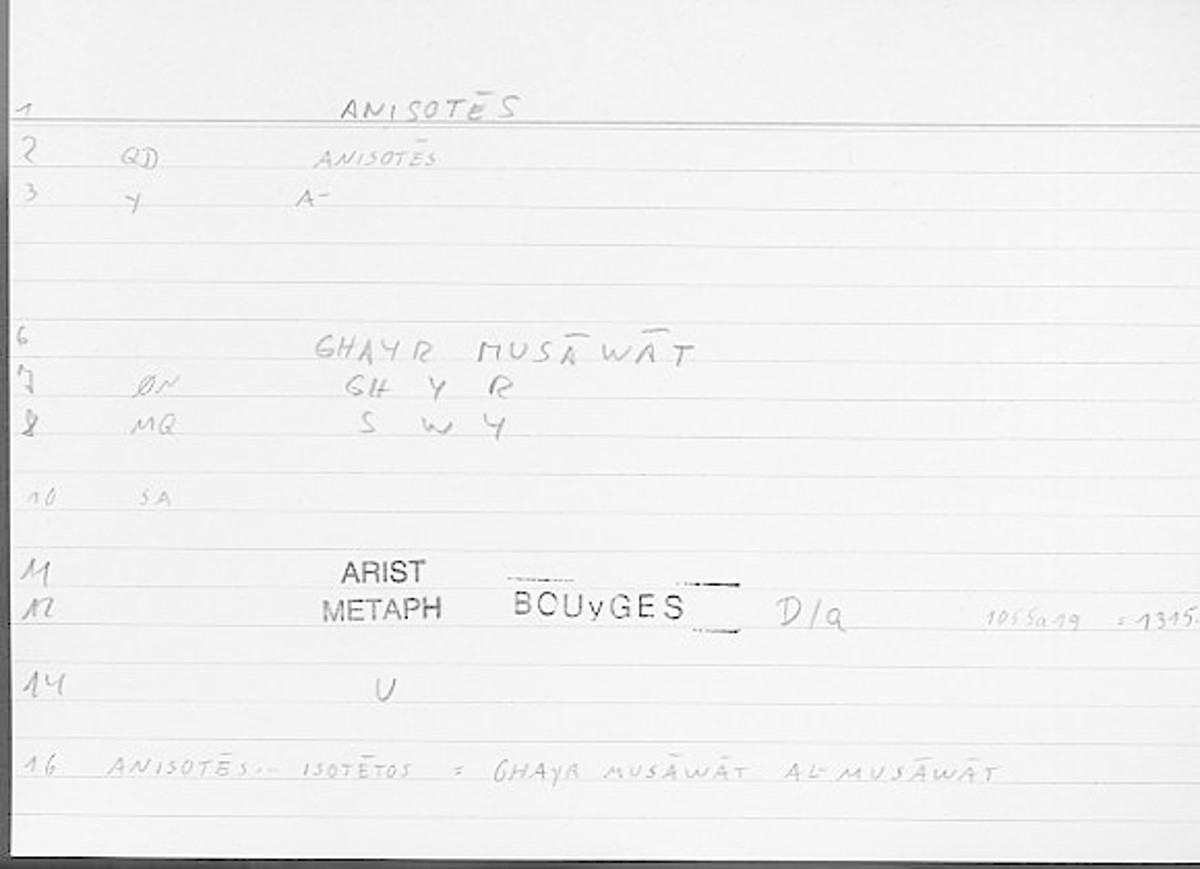 1 ANISOTĒS
2 QD ANISOTĒS
3 Y A-
6 GHAYR MUSĀWĀT
7 ØN GH Y R
8 MQ S W Y
10 SA
11 ARIST
12 METAPH BOUyGES D/a 1055a19 = 1315.
14 U
16 ANISOTĒS.- ISOTĒTOS = GHAYR MUSĀWĀT AL-MUSĀWĀT